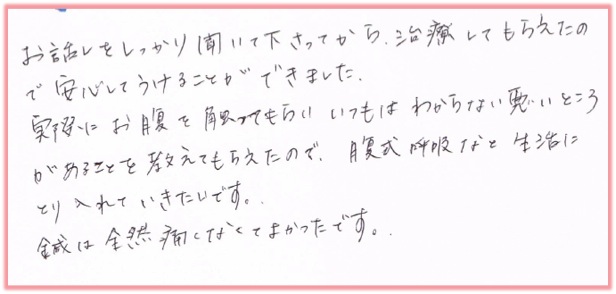 お話しをしっかり聞いて下さってから、治療してもらえたの
で安心してうけることができました。
実際にお腹を触ってもらい いつもはわからない悪いところ
があることを教えてもらえたので、腹式呼吸など生活に
とり入れていきたいです。
鍼は全然痛くなくてよかったです。